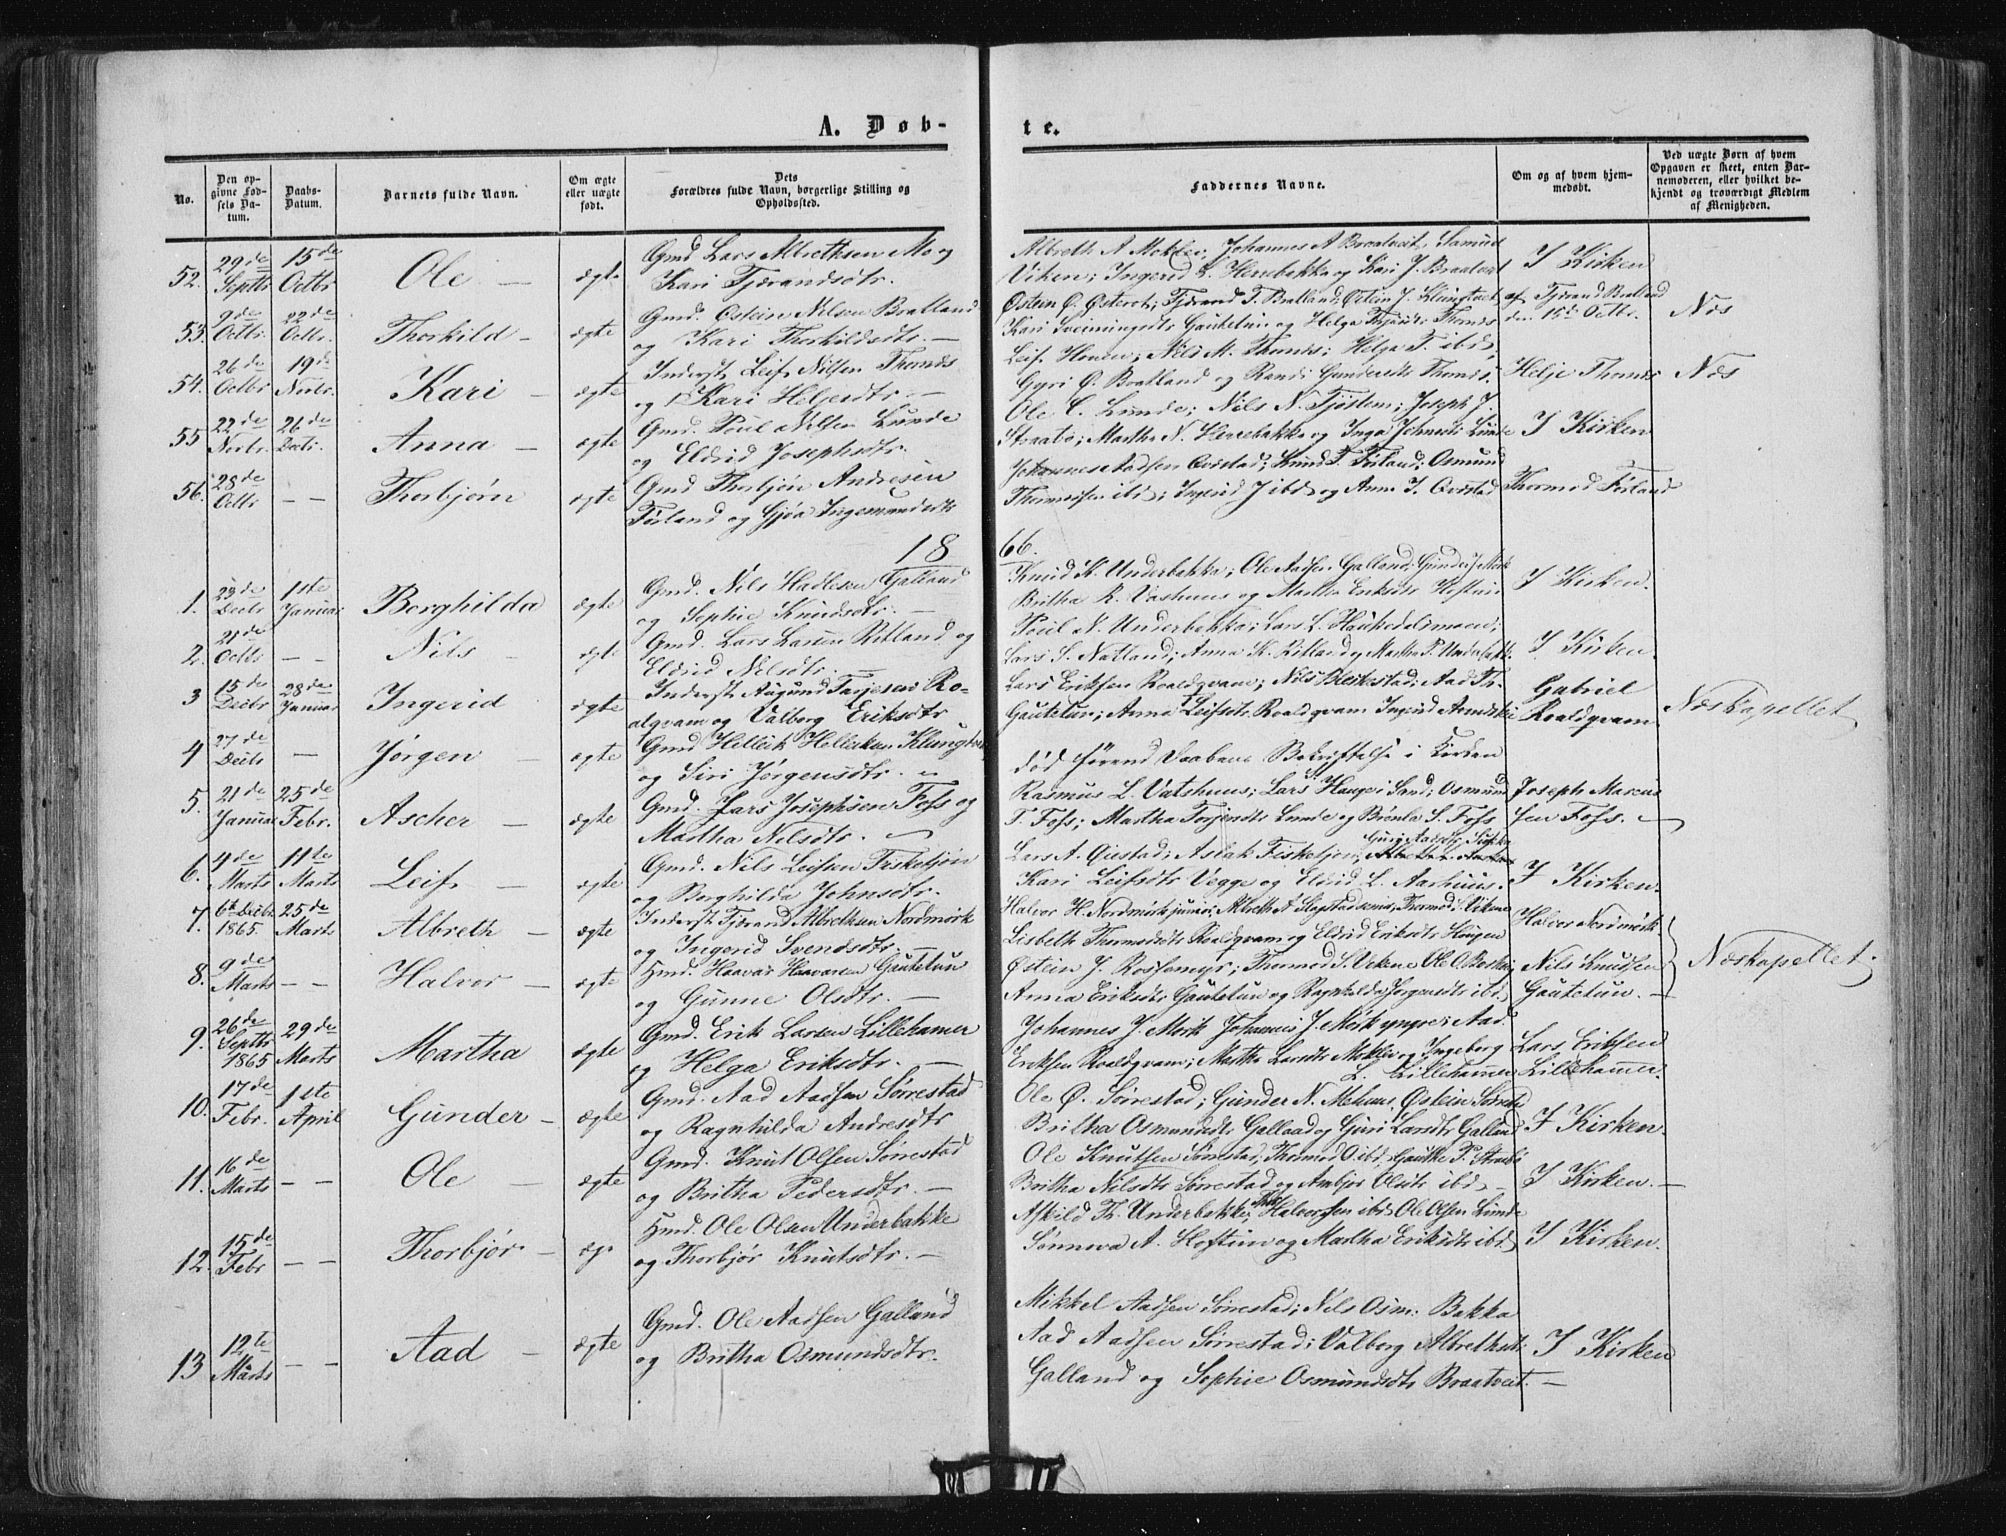 A. Døb-
te.
No.
Den op-
givne Fød-
sels Da-
tum.
Daabs-
Datum.
Barnets fulde Navn.
Om ægte
eller uægte
født.
Dets
Forældres fulde Navn, borgerlige Stilling og
Opholdssted.
Faddernes Navne.
Om og af hvem hjem-
medøbt.
Ved uægte Børn af hvem
Opgaven er skeet, enten Bar-
nemoderen, eller hvilket be-
kjendt og troværdigt Medlem
af Menigheden.
52. 29de Septbr 15de Octbr Ole – ægte
Gmd Lars Albrethsen Mo og
Kari Tjærandsdtr.
Albreth A Moklei; Johannes A Braatveit, Samuel
Viken; Ingerid L. Herrebakka og Kari J. Braatveit
I Kirken
53. 9de Octbr. 22de Octbr. Thorkild – ægte
Gmd. Østein Nilsen Bratland
og Kari Thorkildsdtr. –
Østen Ø. Østerot; Tjærand T. Bratland; Østein J.
Kari Sveiningsdtr Gautetun og Helga Thomés
af Tjærand Bratland
den 15de Octbr.
Næs
54. 26de Octbr 19de Novbr. Kari – ægte
Inderst Leif Nilsen Thomés
og Kari Heljesdtr. –
Leif Honen; Nils N. Thomés; Helga T. ibd;
Gyri Ø. Bratland og Randi Gundersdtr Thomés.
Helje Thomés
Næs
55 22de Novbr. 26de Decbr. Anna – ægte
Gmd. Poul Nilsen Lunde
og Eldrid Josephsdtr.
Ole C. Lunde; Nils N. Tjøstem; Joseph J.
Straabø; Martha N. Herrebakka og Inga Lunde
I Kirken
56. 28de Octbr – – Thorbjørn ægte
Gmd Thorbjørn Andresen
Førland og Gjøa Ingemundsdtr
Johannes Aadsen Qvistad; Knud T. Førland; Osmund
Thormodsen ibd; Ingerid J ibd og Anna T. Qvistad
Thormod Førland
18
66.
1. 23de Decbr 1ste Januar Borghilda ægte
Gmd. Nils Hadlesen Galland
og Sophie Knudsdtr. –
Knud K. Underbakka; Ole Aadsen Galland; Gunder J Mørk
Britha R. Vashuus og Martha Eriksdtr Hoftun
I Kirken.
2. 21de Octbr – – Nils – ægte
Gmd. Lars Larsen Ritland og
Eldrid Nilsdtr. –
Poul N. Underbakka; Lars L. Haukedalsmoen;
Lars S. Natland; Anna K. Ritland og Martha P. Underbakk.
I Kirken.
3 15de Decbr 28de Januar Ingerid ægte
Inderst Aagund Tarjesen Ro-
alqvam og Valborg Eriksdtr
Lars Eriksen Roaldqvam; Nils Bleikestad; Aad Th.
Gautetun; Anna Leifsdtr Roaldqvam Ingrid
Gabriel
Roaldqvam
Næskapellet
4 27de Decbr – Jørgen – ægte
Gmd Helleik Helleiksen Klungtveit
og Siri Jørgensdtr. –
død førend Daabens Bekræftelse i Kirken
5. 21de Januar 25de Febr. Ascher – ægte
Gmd. Lars Josephsen Foss og
Martha Nilsdtr. –
Rasmus L. Vatshuus; Lars S. Hauge i Sand; Osmund
T. Foss; Martha Torjersdtr Lunde og Brønla S. Foss
Joseph Marcus
sen Foss. –
6. 4de Marts 11te Marts Leif – ægte
Gmd. Nils Leifsen Fisketjøn
og Borghilda Johnsdtr.
Lars A. Giestad; Aslak Fisketjøn; Guri Aadsdtr
Kari Leifsdtr Vegge og Eldrid L. Aarhuus.
I Kirken.
7. 6te Decbr 1865. 25de Marts Albreth – ægte
Inderst Tjærand Albrethsen Nordmørk
og Ingerid Svendsdtr. –
Halvor H. Nordmørk junior; Albreth A Slagstad senior; Thormod S. Vikene
Lisbeth Thormodsdtr Roaldqvam og Eldrid Eriksdtr Haugen
Halvor Nordmørk.
8. 9de Marts – – Halvor – ægte
Hmd. Haavar Haavarsen Gautetun
og Gunne Olsdtr. –
Østein J. Rossemyr; Thormod S. Vikene Ole O. Berkei,
Anna Eriksdtr Gautetun og Ragnhilda Jørgensdtr ibd
Nils Knudsen
Gautetun. –
Næskapellet.
9. 26de Septbr 1865 29de Marts Martha ægte
Gmd. Erik Larsen Lillehamer
og Helga Eriksdtr. –
Johannes J. Mørk Johannes J. Mørk yngre; Aad.
Eriksen Roaldqvam; Martha Larsdtr Moklev og Ingeborg
L. Lillehammer
Lars Eriksen
Lillehammer.
10. 17de Febr. 1ste April Gunder – ægte
Gmd. Aad Aadsen Sørrestad
og Ragnhilda Andresdtr
Ole Ø. Sørrestad; Gunder N. Mehuus, Østein Sørrestad
Britha Osmundsdtr Galland og Guri Larsdtr Galland
I Kirken.
11. 16de Marts – – Ole – ægte
Gmd. Knut Olsen Sørrestad
og Britha Pedersdtr. –
Ole Knutsen Sørrestad, Thormod O ibd; Gautke P. Straabø
Britha Nilsdtr Sørrestad og Anbjør Olsdtr ibd –
I Kirken. –
12. 15de Febr – – Thorbjør – æg.
Hmd. Ole Olsen Underbakke
og Thorbjør Knutsdtr. –
Askild Th. Underbakke; Halvorsen ibd; Ole Olsen Lunde
Sønneva A. Hoftun og Martha Eriksdtr ibd
I Kirken.
13 12te Marts – – Aad – ægte
Gmd. Ole Aadsen Galland
og Britha Osmundsdtr.
Mikkel Aadsen Sørrestad; Nils Osm. Bakka
Aad Aadsen Sørrestad; Valborg Albrethsdtr
Galland og Sophie Osmundsdtr Braatveit. –
I Kirken